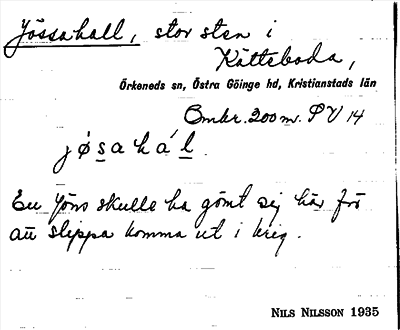 Jössahall, stor sten i
Kätteboda,
Örkeneds sn, Östra Göinge hd, Kristianstads län
Omkr. 200 m. PV 14
jǿsahál.
En Jöns skulle ha gömt sig här frö
att slippa komma ut i krig.
NILS NILSSON 1935